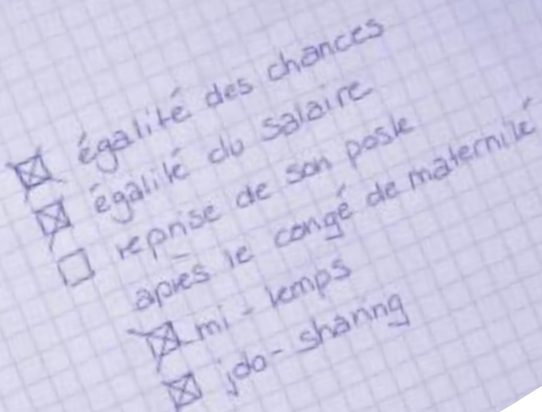 ☒ égalité des chances
☒ égalité du salaire
☐ reprise de son poste
après le congé de maternité
☒ mi-temps
☒ job-sharing